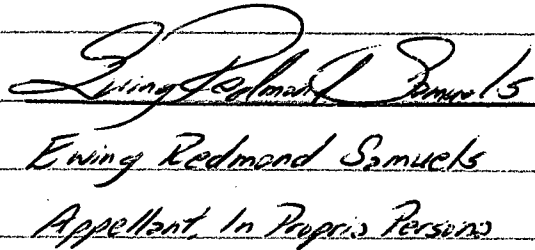 Ewing Redmond Samuels
Ewing Redmond Samuels
Appellant, In Propria Persona